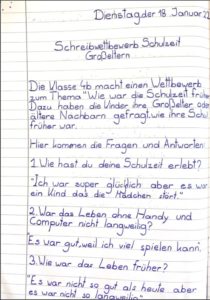 Dienstag der 18. Januar 22
Schreibwettbewerb Schulzeit
Großeltern
Die Klasse 4b macht einen Wettbewerb
zum Thema "Wie war die Schulzeit früher
Dazu haben die Kinder ihre Großelter oder
ältere Nachbarn gefragt, wie ihre Schul
früher war.
Hier kommen die Fragen und Antworten:
1. Wie hast du deine Schulzeit erlebt?
"Ich war super glücklich aber es war
ein Kind das die Mädchen stört."
2. War das Leben ohne Handy und
Computer nicht langweilig?
"Es war gut, weil ich viel spielen kann.
3. Wie war das Leben früher?
"Es war nicht so gut als heute aber
es war nicht so langweilig"